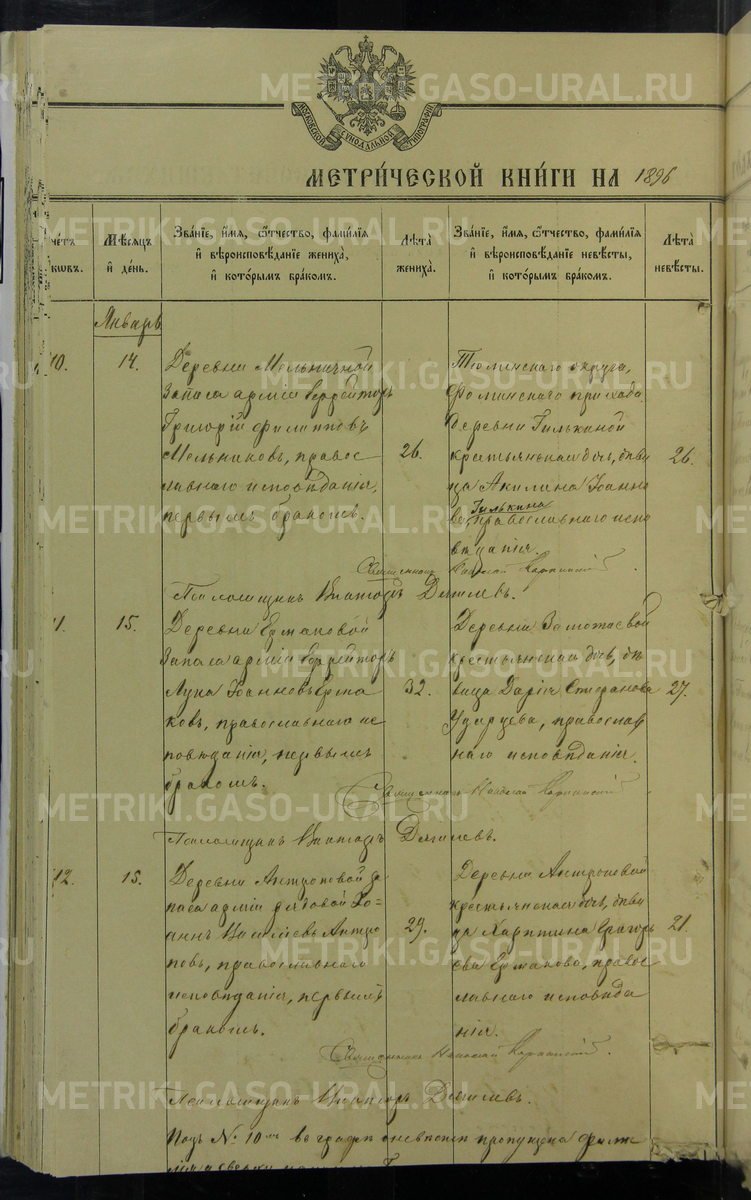 МОСКОВСКОЙ СѴНОДАЛЬНОЙ ТИПОГРАФІИ
METRIKI.GASO-URAL.RU
МЕТРИ́ЧЕСКОЙ КНИ́ГИ НА 1896
Мѣсяцъ
и день.
Зва́нїе, и́мя, ѻ҆́тчество, фами́лїя
и҆ вѣроисповѣ́данїе жениха̀,
и҆ кото́рымъ бра́комъ.
Лѣ́та
жениха̀.
Зва́нїе, и́мя, ѻ҆́тчество, фами́лїя
и҆ вѣроисповѣ́данїе невѣ́сты,
и҆ кото́рымъ бра́комъ.
Лѣ́та
невѣ́сты.
Январь
10.
14.
Деревни Мельничной
запаса арміи ефрейторъ
Григорій Филипповъ
Мельниковъ, правос
лавнаго исповѣданія,
первымъ бракомъ.
26.
округа,
прихода
деревни Гилькиной
крестьянская дочь, дѣви
ца Акилина Іоанно
Гилькина
ва православнаго испо
вѣданія.
26.
Священникъ Николай
Псаломщикъ
11.
15.
Деревни Ермаковой
запаса арміи ефрейторъ
Лука Іоанновъ Ерма
ковъ, православнаго ис
повѣданія, первымъ
бракомъ.
32.
Деревни
крестьянская дочь, дѣ
вица Дарія Стефанова
Ударцева, православ
наго исповѣданія.
27.
Священникъ Николай
Псаломщикъ
12.
15.
Деревни Антроповой за
паса арміи рядовой Іо=
аннъ Василіевъ Антро
повъ, православнаго
исповѣданія, первымъ
бракомъ.
29.
Деревни Антроповой
крестьянская дочь, дѣви
ца Харитина Григорь
ева Ермакова, правос
лавнаго исповѣда
нія.
21.
Священникъ Николай
Псаломщикъ
Подъ № 10мъ въ графѣ о невѣстѣ пропущена фами
лія а сверху